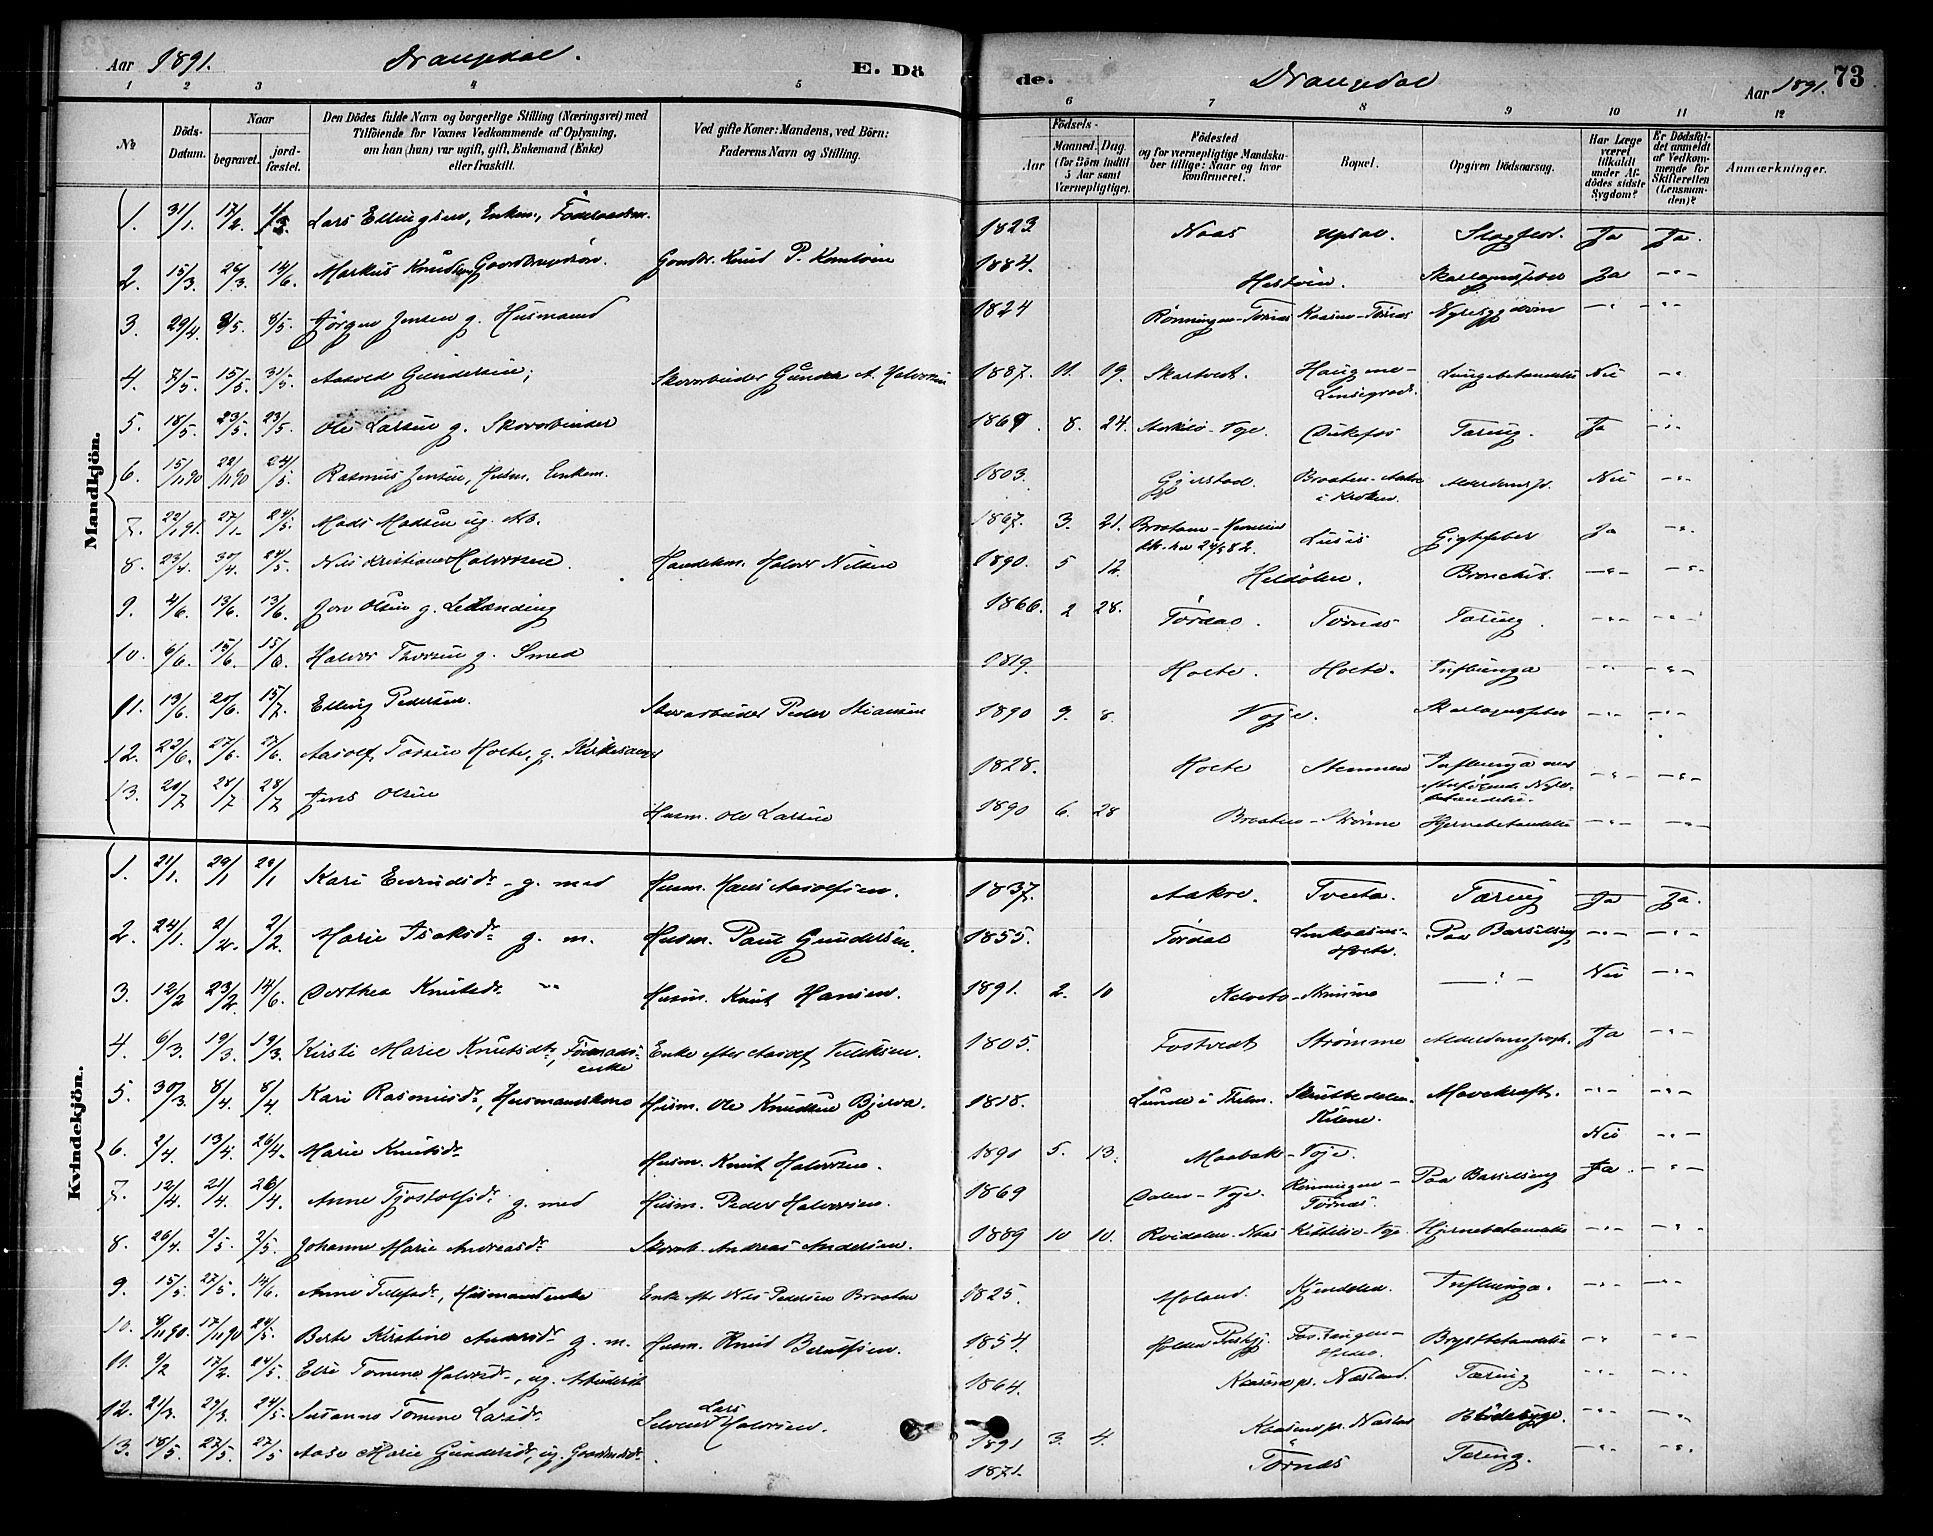 Aar 1891. Drangedal. E. Dö
de. Drangedal Aar 1891. 73
1 2 3 4 5 6 7 8 9 10 11 12
№ Döds-Datum. Naar begravet. jordfæstet. Den Dödes fulde Navn og borgerlige Stilling (Næringsvei) med Tilföiende for Voxnes Vedkommende af Oplysning, om han (hun) var ugift, gift, Enkemand (Enke) eller fraskilt. Ved gifte Koner: Mandens, ved Börn: Faderens Navn og Stilling.
Födsels- Aar Maaned. Dag. (for Börn indtil 5 Aar samt Værnepligtige). Födested og for værnepligtige Mandskaber tillige: Naar og hvor konfirmeret. Bopæl. Opgiven Dödsaarsag. Har Læge været tilkaldt under Afdödes sidste Sygdom? Er Dödsfaldet anmeldt af Vedkommende for Skifteretten (Lensmanden)? Anmærkninger.
Mandkjön.
1. 31/1. 17/2. 1/3. Lars Ellingsen, Enkem., Föderaadsm. 1823 Naas Upsal. Slagflod. Ja Ja.
2. 15/3. 26/3. 14/6. Markus Knudsen, Gaardbrugersön Gaardbr. Knud P. 1884. Hestöen. Skarlagensfeber Ja — " —
3. 29/4. 8/5. 8/5. Jörgen Jensen g. Husmand 1824 Rönningen-Törnes Kaasene-Törnes Nyresygdom — " — — " —
4. 7/5. 15/5. 31/5. Aasold Gundersen; Skovarbeider Gunder A. Halvorsen 1887. 11. 19. Skartvedt. Haugene- Lungebetændelse Nei — " —
5. 18/5. 23/5. 23/5. Ole Larsen g. Skovarbeider 1869. 8. 24. Voje. Tæring. Ja — " —
6. 15/11 90 22/11 90 24/5. Rasmus Jensen, Husm. Enkem. 1803. Gjerstad. Braaten-Aakre i Kroken. Alderdomssv. Nei — " —
7. 22/1 91. 27/1. 24/5. Mads Madsen ug. Arb. 1867. 3. 21. Braatene - 24/9 82. Lusis Gigtfeber Ja — " —
8. 23/4. 30/4. 24/5. Nils Kristian Halvorsen. Handelsm. Halvor Nilsen 1890. 5 12. Heldölen. Bronchit. — " — — " —
9. 4/6. 13/6. 13/6. Jon Olsen g. Leilænding 1866. 2 28. Tördal. Törnes Tæring. — " — — " —
10. 6/6. 15/6. 15/6. Halvor Thorsen g. Smed 1819. Holte. Holte. Influenza — " — — " —
11. 13/6. 20/6. 15/7. Elling Pedersen. Skovarbeider Peder Stiansen 1890 9. 8. Voje. Skarlagensfeber — " — — " —
12. 22/6. 27/6. 27/6. Aasolf Torsen Holte, g. Kirkesanger 1828. Holte Stemmen Influenza med efterfölgende Nyrebetændelse. — " — — " —
13. 20/7 28/7 28/7 Jens Olsen Husm. Ole Larsen 1890 6. 28 Braaten-Strömme Hjernebetændelse — " — — " —
Kvindekjön.
1. 21/1. 29/1 29/1 Kari Evindsdr. g. med Husm. Hans Aasolfsen. 1837. Aakre. Tveita. Tæring Ja Ja.
2. 24/1. 2/2. 2/2. Marie Isaksdr. g. m. Husm. Paul Gundersen. 1855. Tördal Holte. Paa Barselseng — " — — " —
3. 12/2 23/2 14/6. Dorthea Knutsdr. " Husm. Knut Hansen. 1891. 2. 10 Strömme — " — Nei — " —
4. 6/3. 19/3. 19/3. Kirsti Marie Knutsdtr, Föderaadsenke Enke efter Aasolf 1805. Tostvedt Strömme Alderdomssvagh. Ja — " —
5. 30/3. 8/4. 8/4. Kari Rasmusdr., Husmandskone Husm. Ole Knudsen Bjerva. 1818. Lunde i Thelm. Skrubbedalen- Kilene. Mavekræft. — " — — " —
6. 2/4. 13/4. 26/4. Marie Knutsdr. Husm. Knut Halvorsen. 1890 5. 13. Maabæk - Voje. Nei — " —
7. 12/4 21/4. 26/4. Anne Tjostolfsdr. g. med Husm. Peder Halvorsen. 1869 Dalen - Voje. Rönningen - Törnes. Paa Barselseng Ja — " —
8. 26/4. 2/5. 2/5. Johanne Marie Andreasdr. Skovarb. Andreas Andersen. 1889 10 10. Kvidalen-Naas Kittelsö-Voje. Hjernebetændelse — " — — " —
9. 15/5. 27/5. 14/6. Anne Tellefsdr., Husmandsenke Enke efter Nils Pedersen Braaten 1825. Moland. Influenza. — " — — " —
10. 9/11 90. 17/11 90 24/5. Berte Kirstine g. m. Husm. Knud Berulfsen. 1854. Holden Brystbetændelse — " — " —
11. 9/2 17/2. 24/5. Else Tomine Halvorsdr., ug. Arbeiderdr. 1864. Kaasene pr. Næsland. Tæring — " — — " —
12. 21/3. 29/3. 24/5. Susanne Tomine Larsdr. Selveier Lars Halvorsen. 1891 3. 4. Kaasene pr. Næsland — " — — " —
13. 18/5. 27/5. 27/5 Aase Marie Gundersdr, ug. Gaardmdr. 1871. Törnes Tæring. — " — — " —